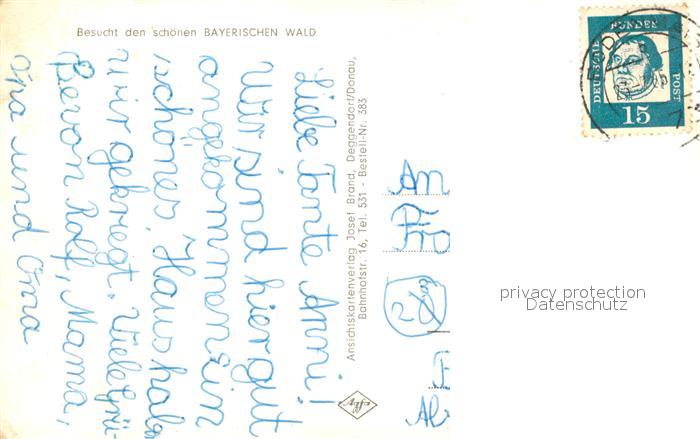 Besucht den schönen BAYERISCHEN WALD
Liebe Tante Anni!
Wir sind hier gut
angekommen Ein
schönes Haus habn
wir gekriegt. Viele Grü-
ße von Rolf, Mama,
Opa und Oma
Ansichtskartenverlag Josef Brand, Deggendorf/Donau,
Bahnhofstr. 16, Tel. 531 - Bestell-Nr. 383
DEUTSCHE BUNDES POST
15
An
Fro
privacy protection
Datenschutz